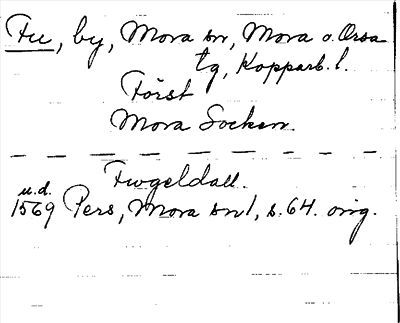 Fu, by, Mora sn, Mora o. Orsa
tg, Kopparb. l.
Först
Mora Socken.
u.d.
1569 Pers, Mora snl, s. 64. orig.